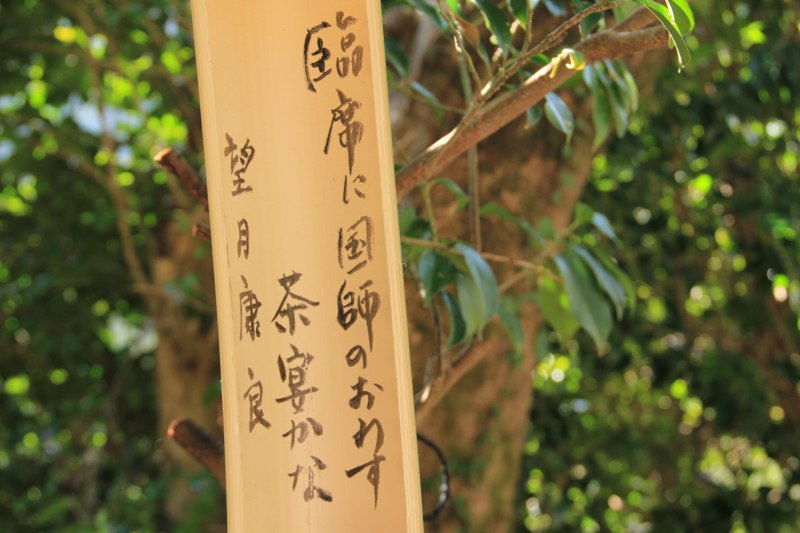 臨席に国師のおわす
茶宴かな
望月康良